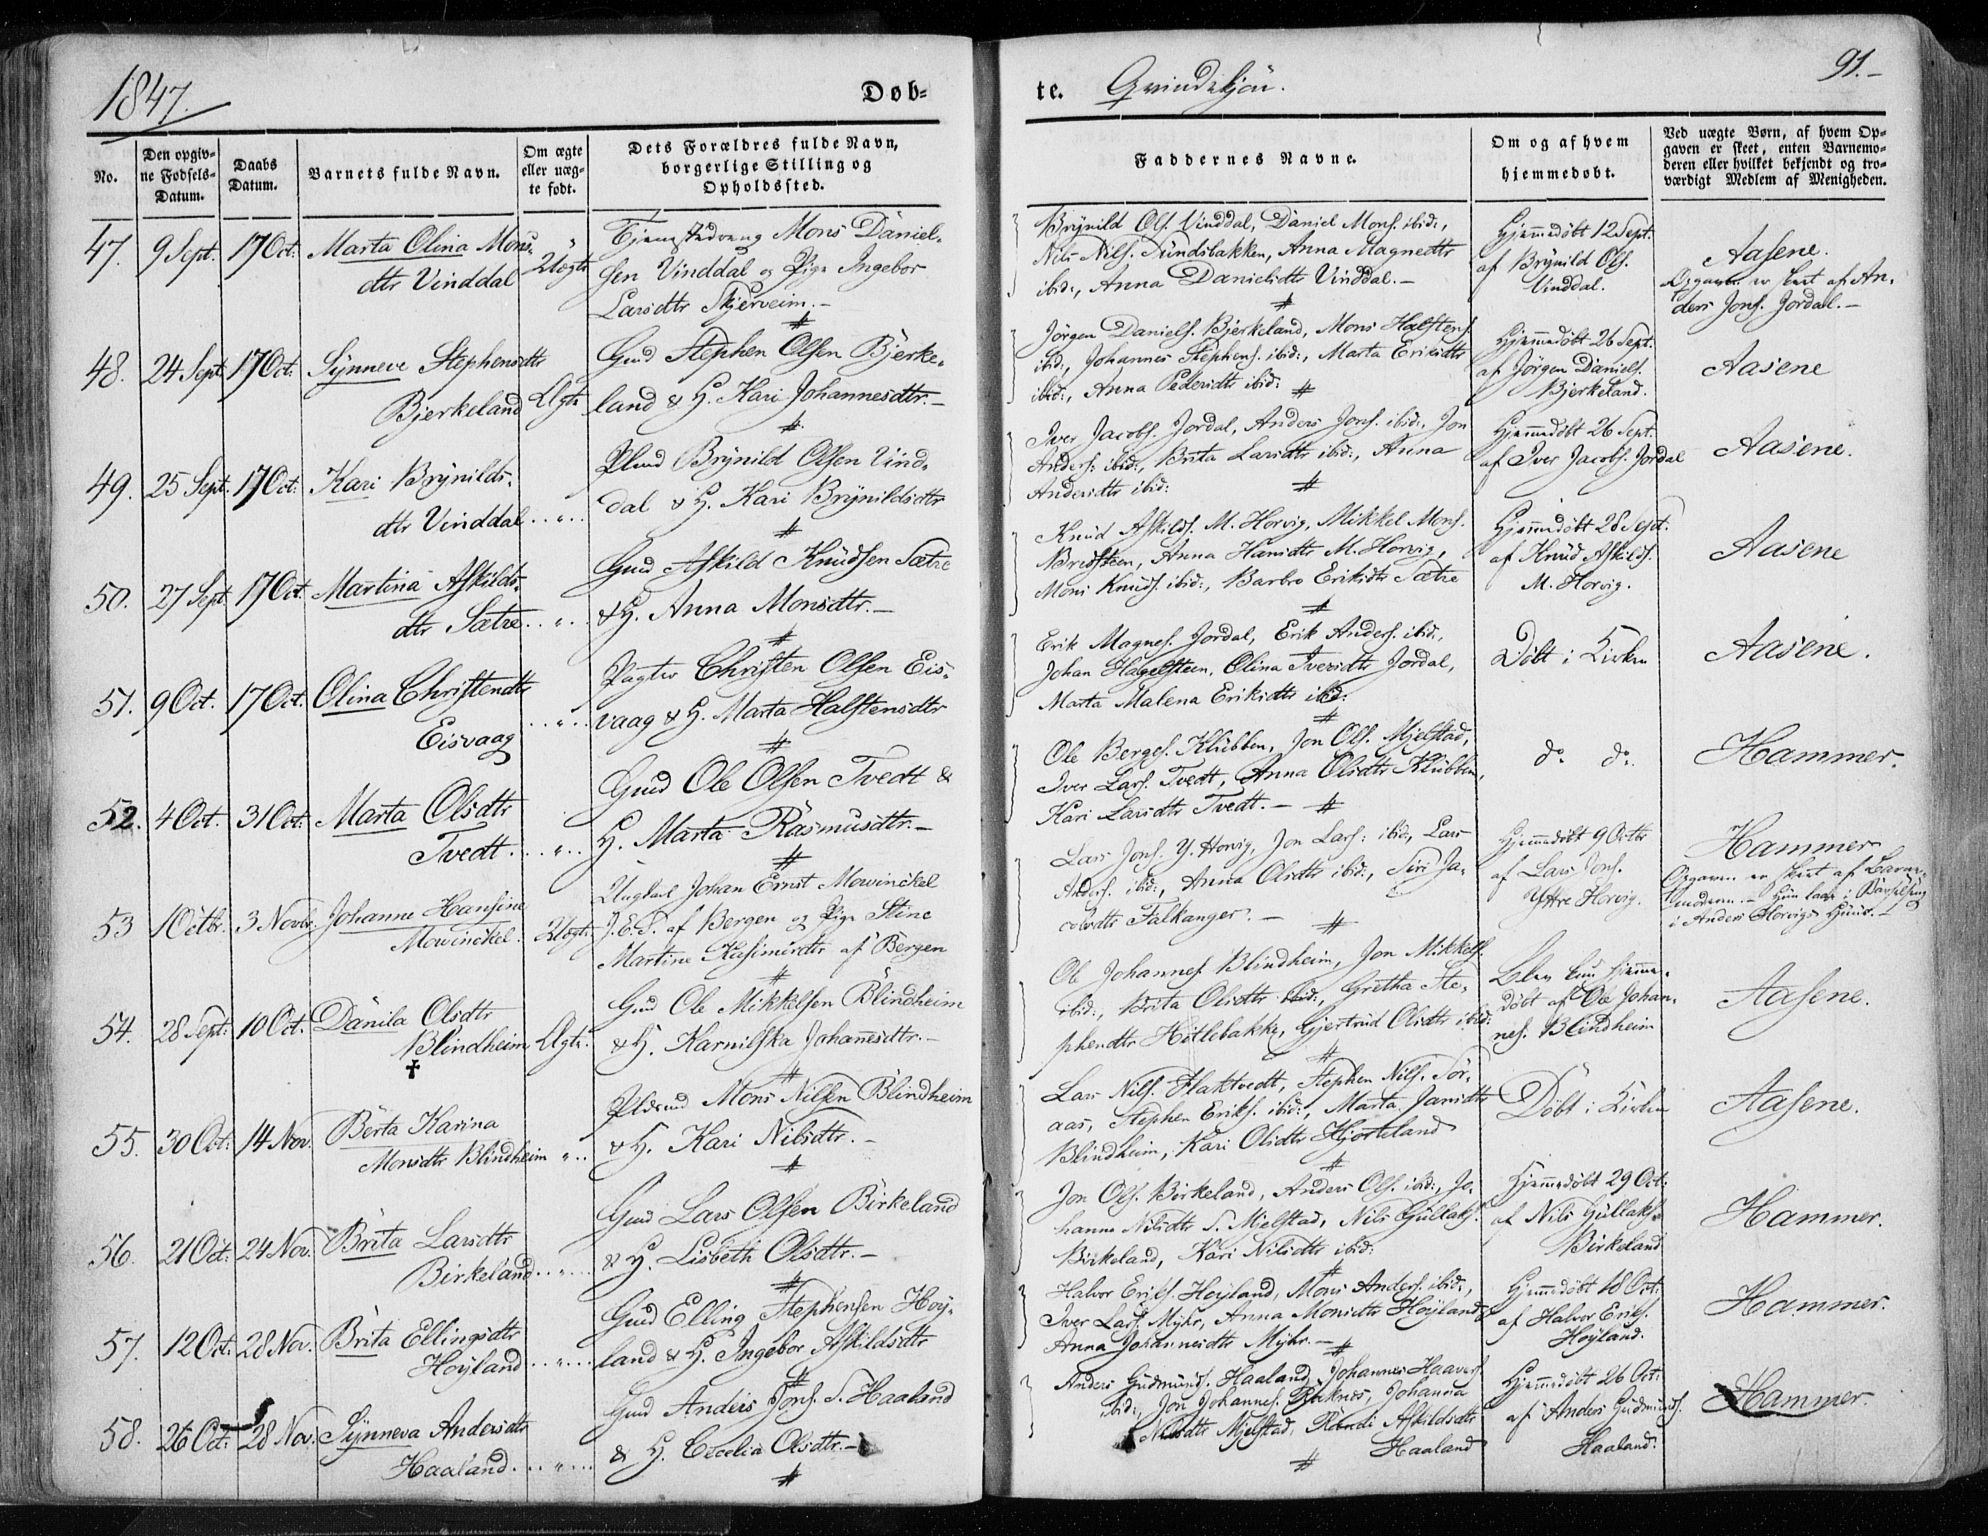 1847.
Døb-
te. Qvindekjön.
91.-
No.
Den opgiv-
ne Fødsels-
Datum.
Daabs
Datum.
Barnets fulde Navn.
Om ægte
eller uæg-
te født.
Dets Forældres fulde Navn,
borgerlige Stilling og
Opholdssted.
Faddernes Navne.
Om og af hvem
hjemmedøbt.
Ved uægte Børn, af hvem Op-
gaven er skeet, enten Barnemo-
deren eller hvilket bekjendt og tro-
værdigt Medlem af Menigheden.
47. 9 Sept. 17 Oct. Marta Olina Mons-
dtr Vinddal
Uægte
Tjenestedreng Mons Daniel-
sen Vinddal og Pige Ingebor
Larsdtr Skjerveim.-
Brÿnild Ols. Vinddal, Daniel Mons. ibid:,
Nils Nils. Sündsbakken, Anna Magnedtr
ibid:, Anna Danielsdtr Vinddal.-
Hjemmedöbt 12 Sept.
af Brÿnild Ols.
Vinddal.
Aasene.
Opgaven er skeet af An-
ders Jons. Jordal.-
48. 24 Sept. 17 Oct: Sÿnneve Stephensdtr
Bjerkeland Ægte
Gmd Stephen Olsen Bjerke-
land & H. Kari Johannesdtr.-
Jörgen Daniels. Bjerkeland, Mons Halstens.
ibid:, Johannes Stephens. ibid:, Marta Eriksdtr
ibid:, Anna Pedersdtr ibid:
Hjemmedöbt 26 Sept.
af Jörgen Daniels.
Bjerkeland.
Aasene
49. 25 Sept. 17 Oct: Kari Brÿnilds-
dtr Vinddal..„..
Plmd Brÿnild Olsen Vind-
dal & H. Kari Brÿnildsdtr
Iver Jacobs. Jordal, Anders Jons. ibid:, Jon
Anders. ibid:, Brita Larsdtr ibid:, Anna
Andersdtr ibid:
Hjemmedöbt 26 Sept.
af Iver Jacobs. Jordal
Aasene.
50. 27 Sept 17 Oct. Martina Askilds-
dtr Sætre..„..
Gmd Askild Knüdsen Sætre
& H. Anna Monsdtr.-
Knüd Askilds. M. Horvig, Mikkel Mons.
Bredsteen, Anna Hansdtr M. Horvig,
Mons Knuds. ibid:, Barbro Eriksdtr Sætre
Hjemmedöbt 28 Sept.
af Knüd Askilds.
M. Horvig.
Aasene
51. 9 Oct. 17 Oct. Olina Christendtr
Eisvaag ..„..
Pagter Christen Olsen Eis-
vaag & H. Marta Halstensdtr
Erik Magnes. Jordal, Erik Anders. ibid:,
Johan Hagelsteen, Olina Iversdtr Jordal,
Marta Malena Eriksdtr ibid:
Döbt i Kirken
Aasene.
52. 4 Oct. 31 Oct: Marta Olsdtr
Tvedt...„..
Gmd Ole Olsen Tvedt &
H. Marta Rasmusdtr.-
Ole Berges. Klübben, Jon Ols. Mjelstad,
Iver Lars. Tvedt, Anna Olsdtr Klübben,
Kari Larsdtr Tvedt.-
do do
Hammer.
53 1 Octbr. 3 Novbr. Johanne Hansine
Mowinckel. Uægte
Ungkarl Johan Ernst Mowinckel
J. E. S. af Bergen og Pige Stine
Martine Kasimirsdtr af Bergen
Lars Jons. Y. Horvig, Jon Lars: ibid:, Lars
Anders. ibid:, Anna Olsdtr ibid:, Siri Ja-
cobsdtr Falkanger.-
Hjemmedöbt 9 Octbr
af Lars Jons.
Yttre Horvig.
Hammer
Opgaven er skeet af Barne-
moderen.- Hun laae i Barselseng
i Anders Horvigs Huus.-
54. 28 Sept: 10 Oct. Danila Olsdtr
Blindheim Ægte.
✝
Gmd Ole Mikkelsen Blindheim
& H. Karnilska Johannesdtr.-
Ole Johannes. Blindheim, Jon Mikkels.
ibid:, Brita Olsdtr ibid:, Gretha Ste-
phendtr Hitlebakke, Gjertrud Olsdtr ibid:
Blev kun hjemme-
döbt af Ole Johan-
nes. Blindheim
Aasene.
55. 30 Oct: 14 Nov. Berta Karina
Monsdtr Blindheim „..
Pldsmd Mons Nilsen Blindheim
& H. Kari Nilsdtr.-
Lars Nils. Flaktvedt, Stephen Nils. Tör-
aas, Stephen Eriks. ibid:, Marta Jansdtr
Blindheim, Kari Olsdtr Hjorteland
Döbt i Kirken
Aasene.
56. 21 Oct: 24 Nov. Brita Larsdtr
Birkeland..„..
Gmd Lars Olsen Birkeland
& H. Lisbeth Olsdtr.-
Jon Ols. Birkeland, Anders Ols. ibid:, Jo-
hanna Nilsdtr S. Mjelstad, Nils Güllaks.
Birkeland, Kari Nilsdtr ibid:
Hjemmedöbt 29 Oct:
af Nils Güllaks.
Birkeland
Hammer.
57. 12 Oct: 28 Nov. Brita Ellingsdtr
Höÿland..„..
Gmd Elling Stephensen Höÿ-
land & H. Ingebor Askildsdtr
Halvor Eriks. Höyland, Mons Anders. ibid:,
Iver Lars. Mÿhr, Anna Monsdtr Höyland,
Anna Johannesdtr Mÿhr.-
Hjemmedöbt 18 Oct:
af Halvor Eriks.
Höyland.
Hammer.
58. 26 Oct: 28 Nov: Sÿnneva Andersdtr
Haaland...„..
Gmd Anders Jons. S. Haaland
& H. Cecelia Olsdtr.-
Anders Gudmunds. Haaland, Johannes Haavers.
ibid:, Jon Johannes. Räknes, Johanna
Nilsdtr Mjelstad, Randi Askildsdtr
Haaland
Hjemmedöbt 26 Oct:
af Anders Gudmunds.
Haaland.
Hammer.